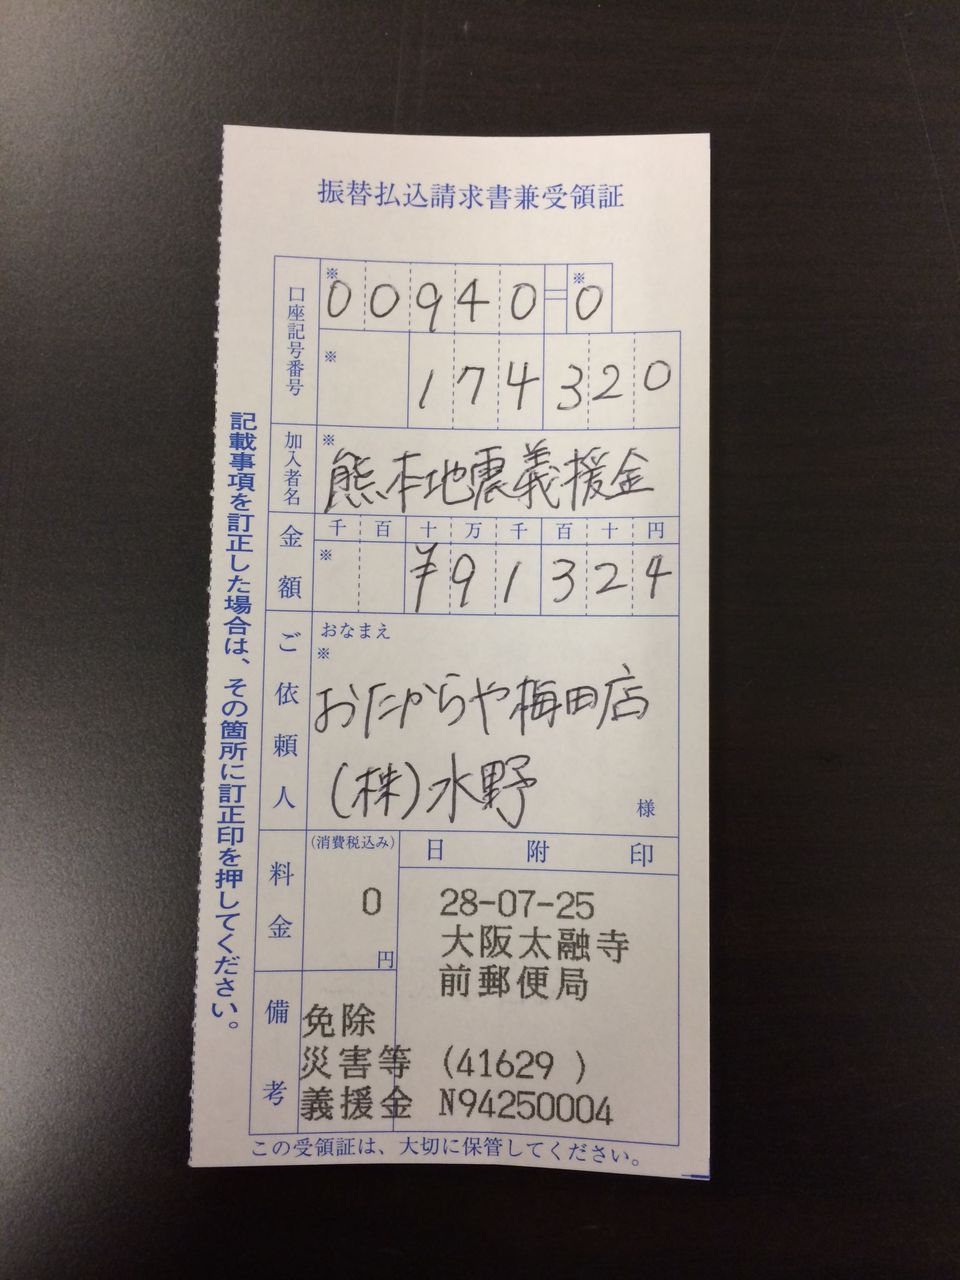 振替払込請求書兼受領証
口座記号番号
※
00940=※0
※
174320
加入者名
※
熊本地震義援金
金額
千百十万千百十円
※
¥91324
ご依頼人
おなまえ
※
おたからや梅田店
(株)水野
様
料金
(消費税込み)
0
円
日附印
28-07-25
大阪太融寺
前郵便局
備考
免除
災害等 (41629 )
義援金 N94250004
この受領証は、大切に保管してください。
記載事項を訂正した場合は、その箇所に訂正印を押してください。